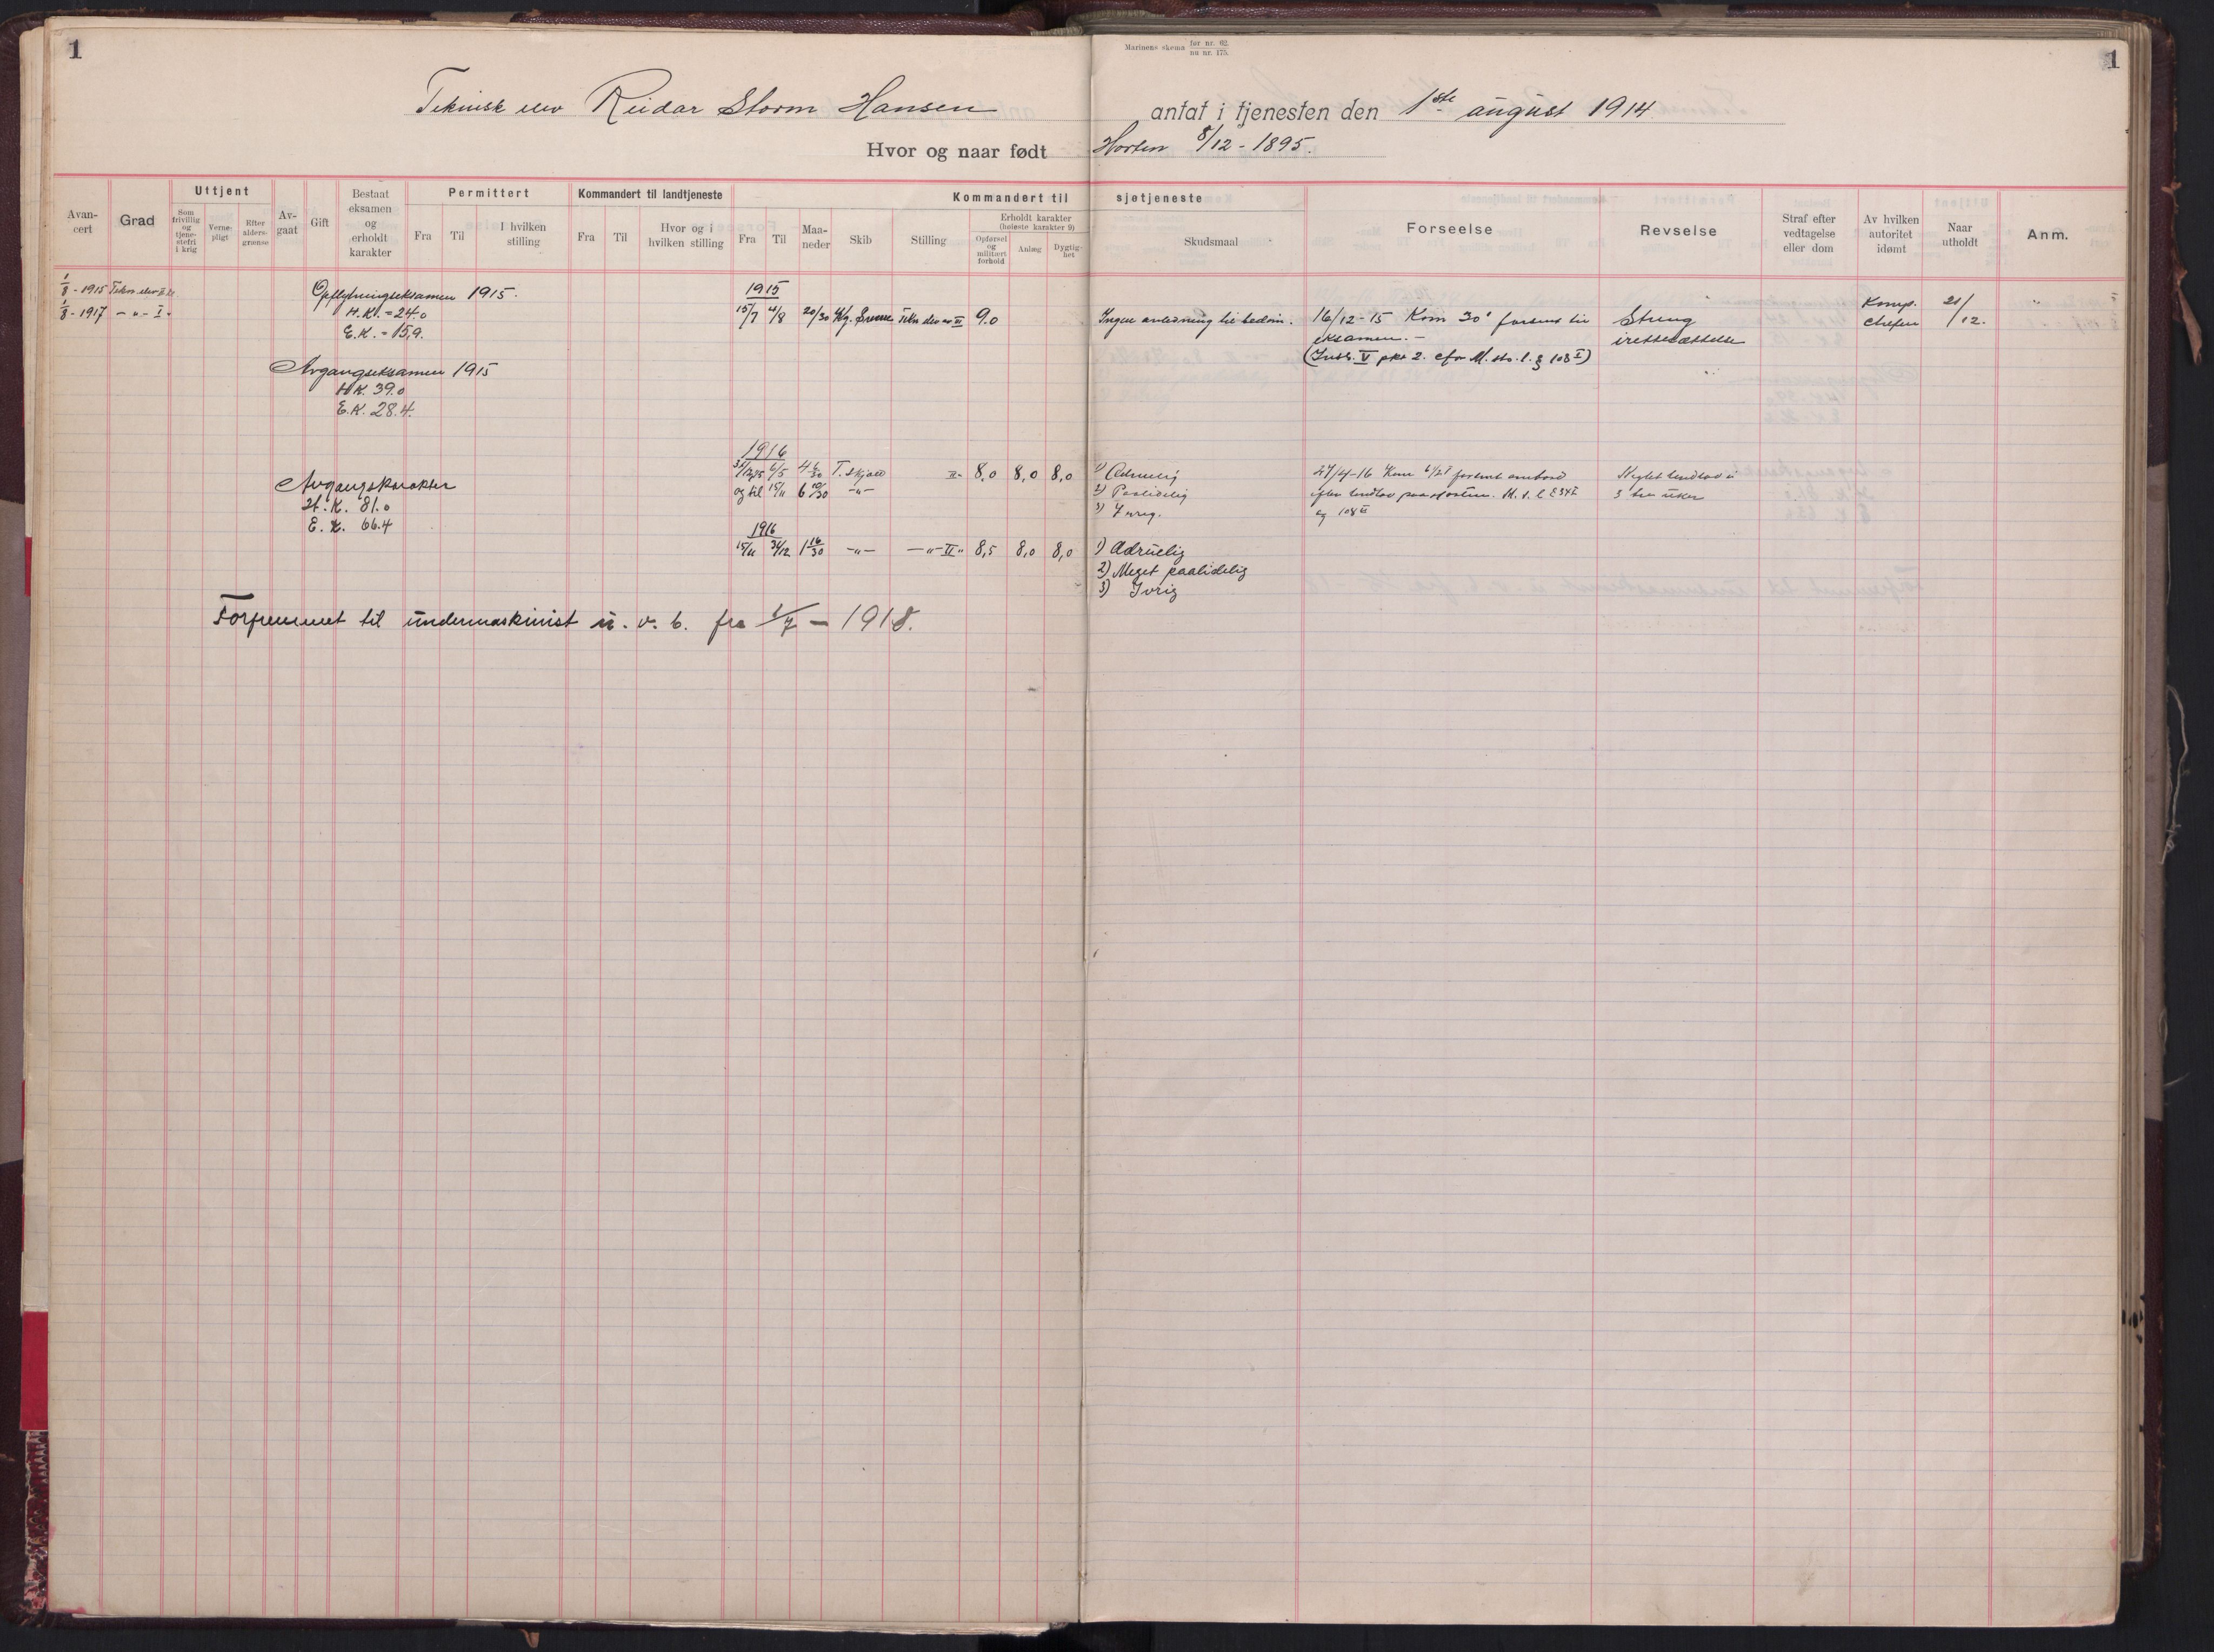 1
Marinens skema før nr. 62. nu nr. 175.
1
Teknisk elev Reidar Storm Hansen antat i tjenesten den 1ste august 1914
Hvor og naar født Horten 8/12 - 1895.
Avancert
Grad
Uttjent
Som frivillig og tjenestefri i krig
Vernepligt
Efter aldersgrænse
Avgaat
Gift
Bestaat eksamen og erholdt karakter
Permittert
Fra
Til
I hvilken stilling
Kommandert til landtjeneste
Fra
Til
Hvor og i hvilken stilling
Kommandert til sjøtjeneste
Fra
Til
Maaneder
Skib
Stilling
Erholdt karakter (høieste karakter 9)
Opførsel og militært forhold
Anlæg
Dygtighet
Skudsmaal
Forseelse
Revselse
Straf efter vedtagelse eller dom
Av hvilken autoritet idømt
Naar utholdt
Anm.
1/8 - 1915 Tekn. elev II
1/8 - 1917 - " - I
Opflytningseksamen 1915.
H.K. = 24.0
E.K. = 15,9.
Avgangseksamen 1915
H.K. 39.0
E.K. 28.4.
Avgangskarakter
H.K. 81.0
E.K. 66.4
1915
15/7 4/8 20/30 Tekn elev II 9.0 Ingen anledning til bedøm.
16/12-15 Kom 30' forsent til
eksamen. -
(Instr. V pkt 2. cfr M. str. l. § 108 I)
Streng
irettesættelse
Komp.
chefen
21/12.
1916
31/12/15 6/5 4 6/30 T. Skjold II 8,0 8,0 8,0
og til 15/11 6 10/30 -"-
1) Ædruelig
2) Paalidelig
3) Ivrig.
27/4-16 Kom forsent ombord
efter landlov paa Horten. M. s. l. § 34 I
og 108
Negtet landlov i
3 tre uker
1916
15/11 31/12 1 16/30 -"- -"- II " 8,5 8,0 8,0
1) Ædruelig
2) Meget paalidelig
3) Ivrig
Forfremmet til undermaskinist u. v. b. fra 1/7 - 1918.